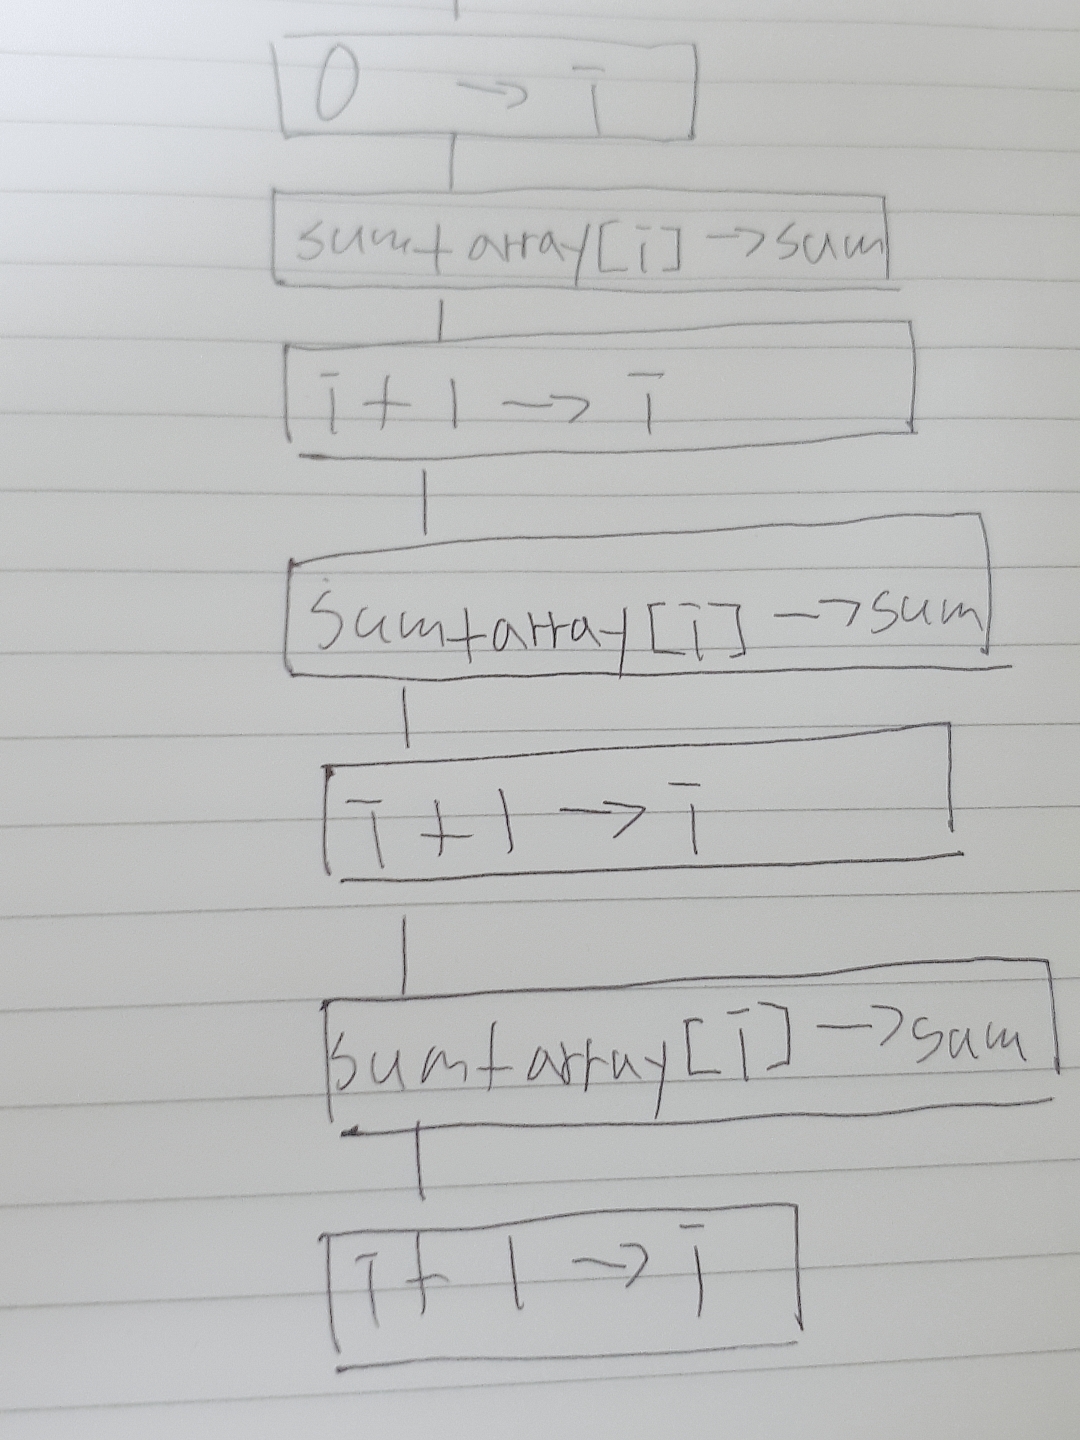 0 → i
sum+array[i] → sum
i + 1 → i
sum+array[i] → sum
i + 1 → i
sum+array[i] → sum
i + 1 → i